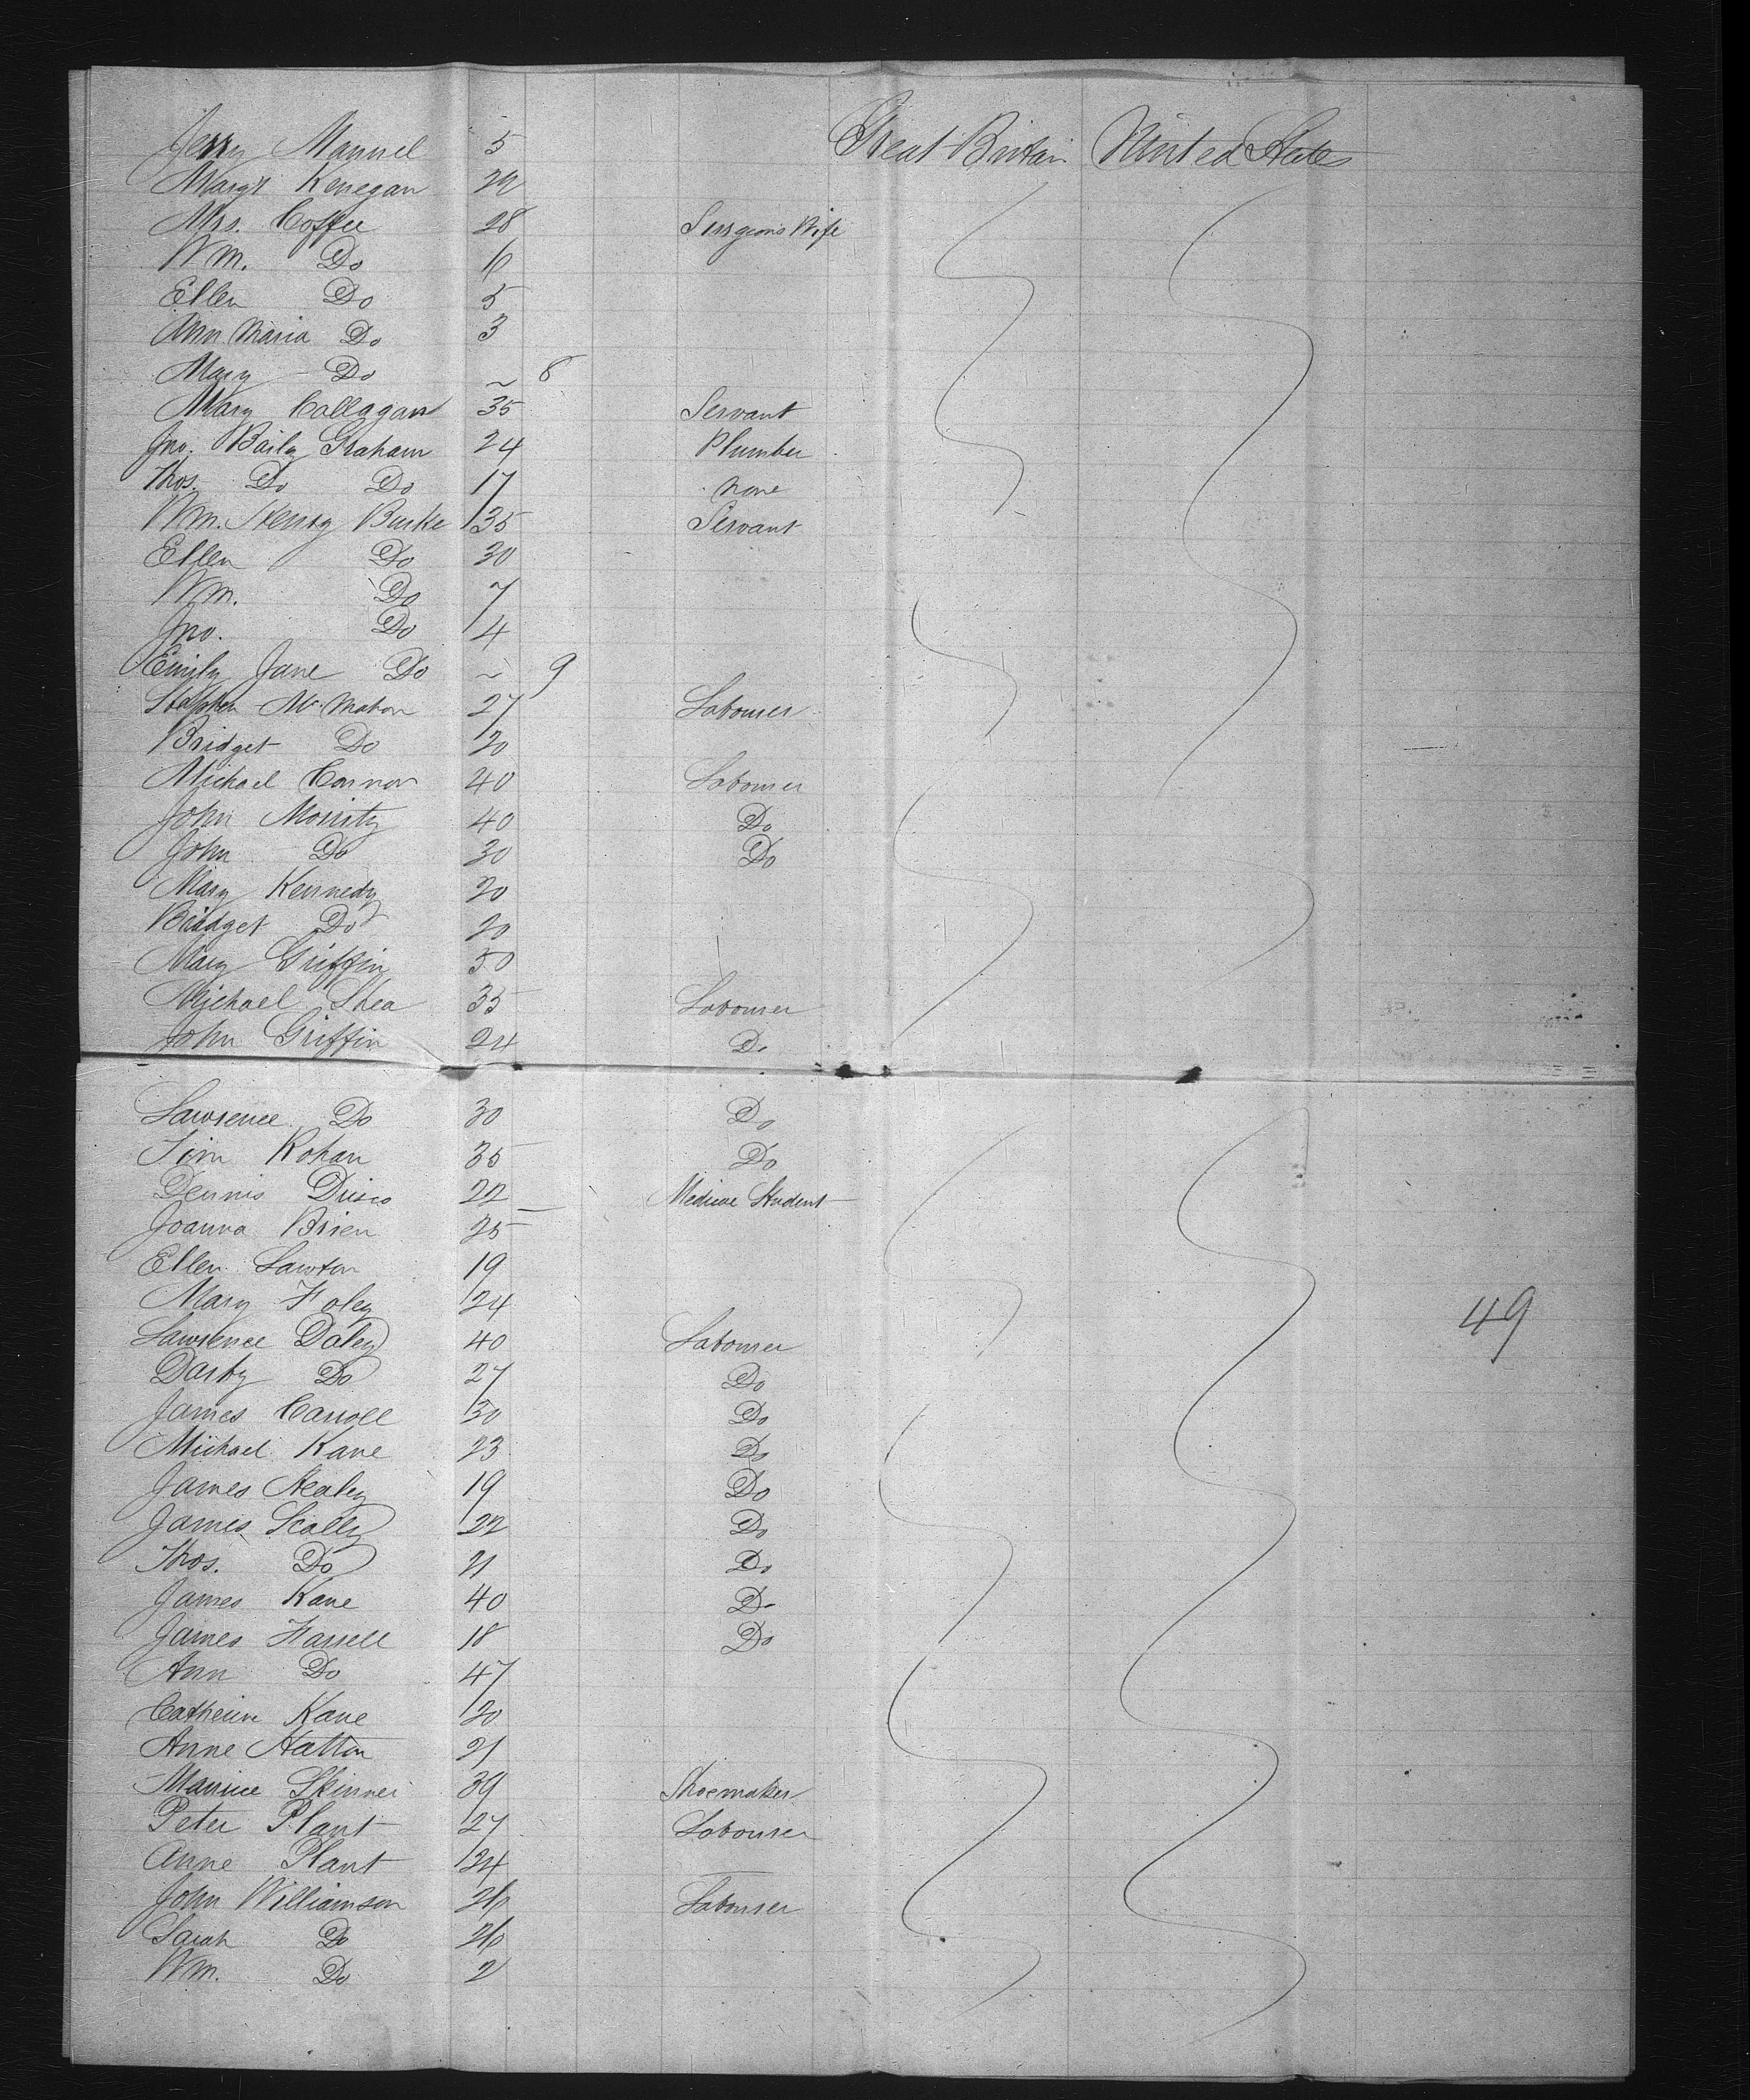 Jerry Manuel 5 Great Britain United States
Margt Kenegan 22
Mrs. Coffee 28 Surgeons Wife
Wm. Do 6
Ellen Do 5
Ann Maria Do 3
Mary Do ~ 8
Mary Callagan 35 Servant
Jno. Baily Graham 24 Plumber
Thos. Do Do 17 none
Wm. Henry Burke 35 Servant
Ellen Do 30
Wm. Do 7
Jno. Do 4
Emily Jane Do ~ 9
Stephen McMahon 27 Labourer
Bridget Do 20
Michael Connor 40 Labourer
John Do 30 Do
Mary Kennedy 20
Bridget Do 20
Mary Griffin 50
Michael Shea 35 Labourer
John Griffin 24 Do
Lawrence Do 30 Do
Tim Rohan 35 Do
Dennis 22 Medical Student
Joanna Brien 25
Ellen Lawton 19
Mary Foley 24
49
Lawrence Daley 40 Labourer
Darby Do 27 Do
James Carroll 30 Do
Michael Kane 23 Do
James Nealey 19 Do
James Scally 22 Do
Thos. Do 21 Do
James Kane 40 Do
James Farrell 18 Do
Ann Do 47
Catherine Kane 20
Anne Hatton 21
Maurice Skinner 39 Shoemaker
Peter Plant 27 Labourer
Anne Plant 24
John Williamson 26 Labourer
Sarah Do 26
Wm. Do 2